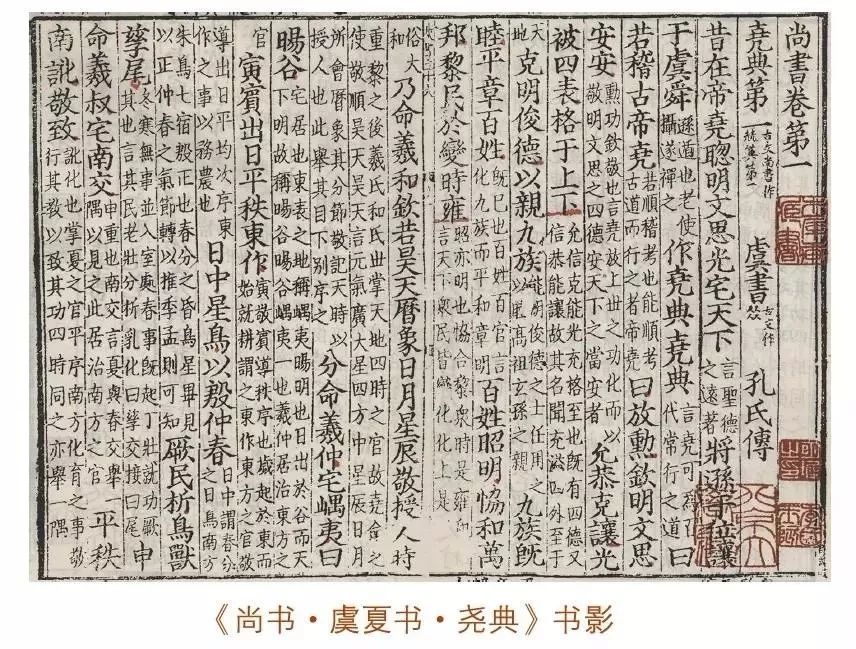 尚書卷第一
堯典第一 古文尚書作 虞書 古文作 孔氏傳
昔在帝堯聰明文思光宅天下 言聖德之遠著 將遜于位讓
于虞舜 遜遁也老使攝遂禪之 作堯典堯典 言堯可爲百代常行之道 曰
若稽古帝堯 若順稽考也能順考古道而行之者帝堯 曰放勳欽明文思
安安 勳功欽敬也言堯放上世之功化而以敬明文思之四德安天下之當安者 允恭克讓光
被四表格于上下 允信克能光充格至也旣有四德又信恭能讓故其名聞充溢四外至于
天地 克明俊德以親九族 能明俊德之士任用之以睦高祖玄孫之親 九族旣
睦平章百姓 旣已也百姓百官言化九族而平和章明 百姓昭明恊和萬
邦黎民於變時雍 昭亦明也協合黎衆時是雍和言天下衆民皆變化化上是
俗大和 乃命羲和欽若昊天曆象日月星辰敬授人時
重黎之後羲氏和氏世掌天地四時之官故堯命之使敬順昊天昊天言元氣廣大星四方中星辰日月
所會曆象其分節敬記天時以授人也此舉其目下別序之 分命羲仲宅嵎夷曰
暘谷 宅居也東表之地稱嵎夷暘明也日出於谷而天下明故稱暘谷暘谷嵎夷一也羲仲居治東方之
官 寅賓出日平秩東作 寅敬賓導秩序也歲起於東而始就耕謂之東作東方之官敬
導出日平均次序東作之事以務農也 日中星鳥以殷仲春 日中謂春分之日鳥南方
朱鳥七宿殷正也春分之昏鳥星畢見以正仲春之氣節轉以推季孟則可知 厥民析鳥獸
孳尾 冬寒無事並入室處春事旣起丁壯就功厥其也言其民老壯分析乳化曰孳交接曰尾 申
命羲叔宅南交 申重也南交言夏與春交舉一隅以見之此居治南方之官 平秩
南訛敬致 訛化也掌夏之官平序南方化育之事敬行其敎以致其功四時同之亦舉一隅
《尚书·虞夏书·尧典》书影